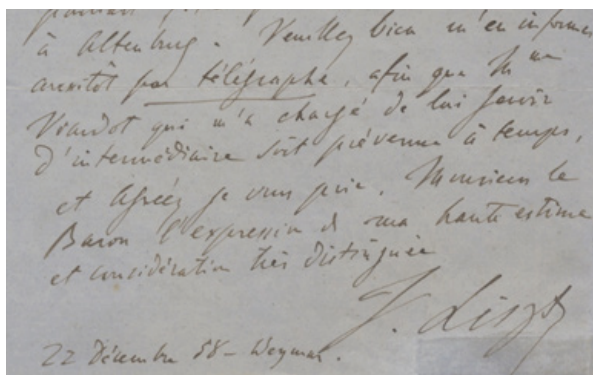 à Altenburg. Veuillez bien m'en informer
aussitôt par télégraphe, afin que Mme
Viardot qui m'a chargé de lui servir
d'intermédiaire soit prévenue à temps,
et agréez je vous prie, Monsieur le
Baron l'expression de ma haute estime
et considération très distinguée
F. Liszt
22 Décembre 58 – Weymar.